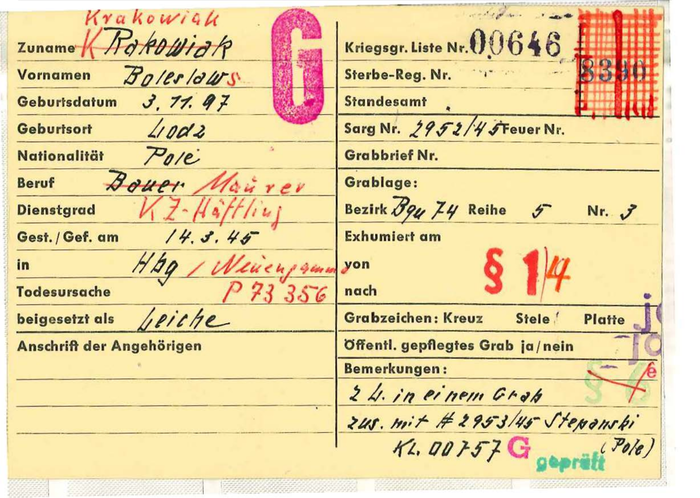 Krakowiak
Zuname K Rakowiak
Vornamen Boleslaws
Geburtsdatum 3.11.97
Geburtsort Lodz
Nationalität Pole
Beruf Bauer Maurer
Dienstgrad KZ-Häftling
Gest./Gef. am 14.3.45
in Hbg / Neuengamme
Todesursache P 73 356
beigesetzt als Leiche
Anschrift der Angehörigen
G
Kriegsgr. Liste Nr. 00646
8390
Sterbe-Reg. Nr.
Standesamt
Sarg Nr. 2952/45 Feuer Nr.
Grabbrief Nr.
Grablage:
Bezirk Bqu 74 Reihe 5 Nr. 3
Exhumiert am
von
nach
§ 1/4
Grabzeichen: Kreuz Stele Platte
ja
Öffentl. gepflegtes Grab ja/nein
ja
Bemerkungen:
§ 6
2 L. in einem Grab
zus. mit # 2953/45 Stepanski
KL. 00757 G (Pole)
geprüft